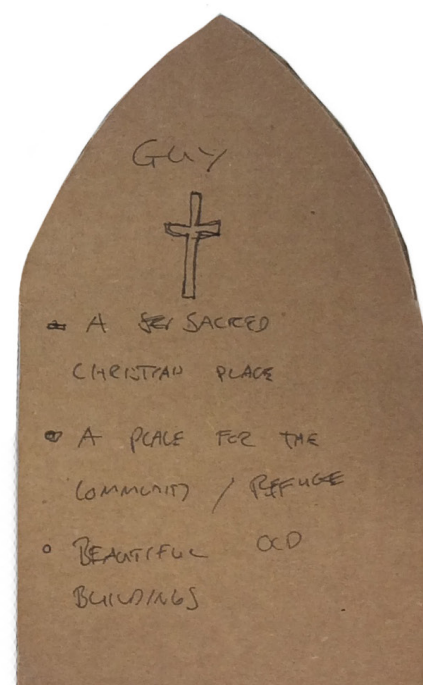 Guy
• A SACRED
CHRISTIAN PLACE
• A PLACE FOR THE
COMMUNITY / REFUGE
• BEAUTIFUL OLD
BUILDINGS